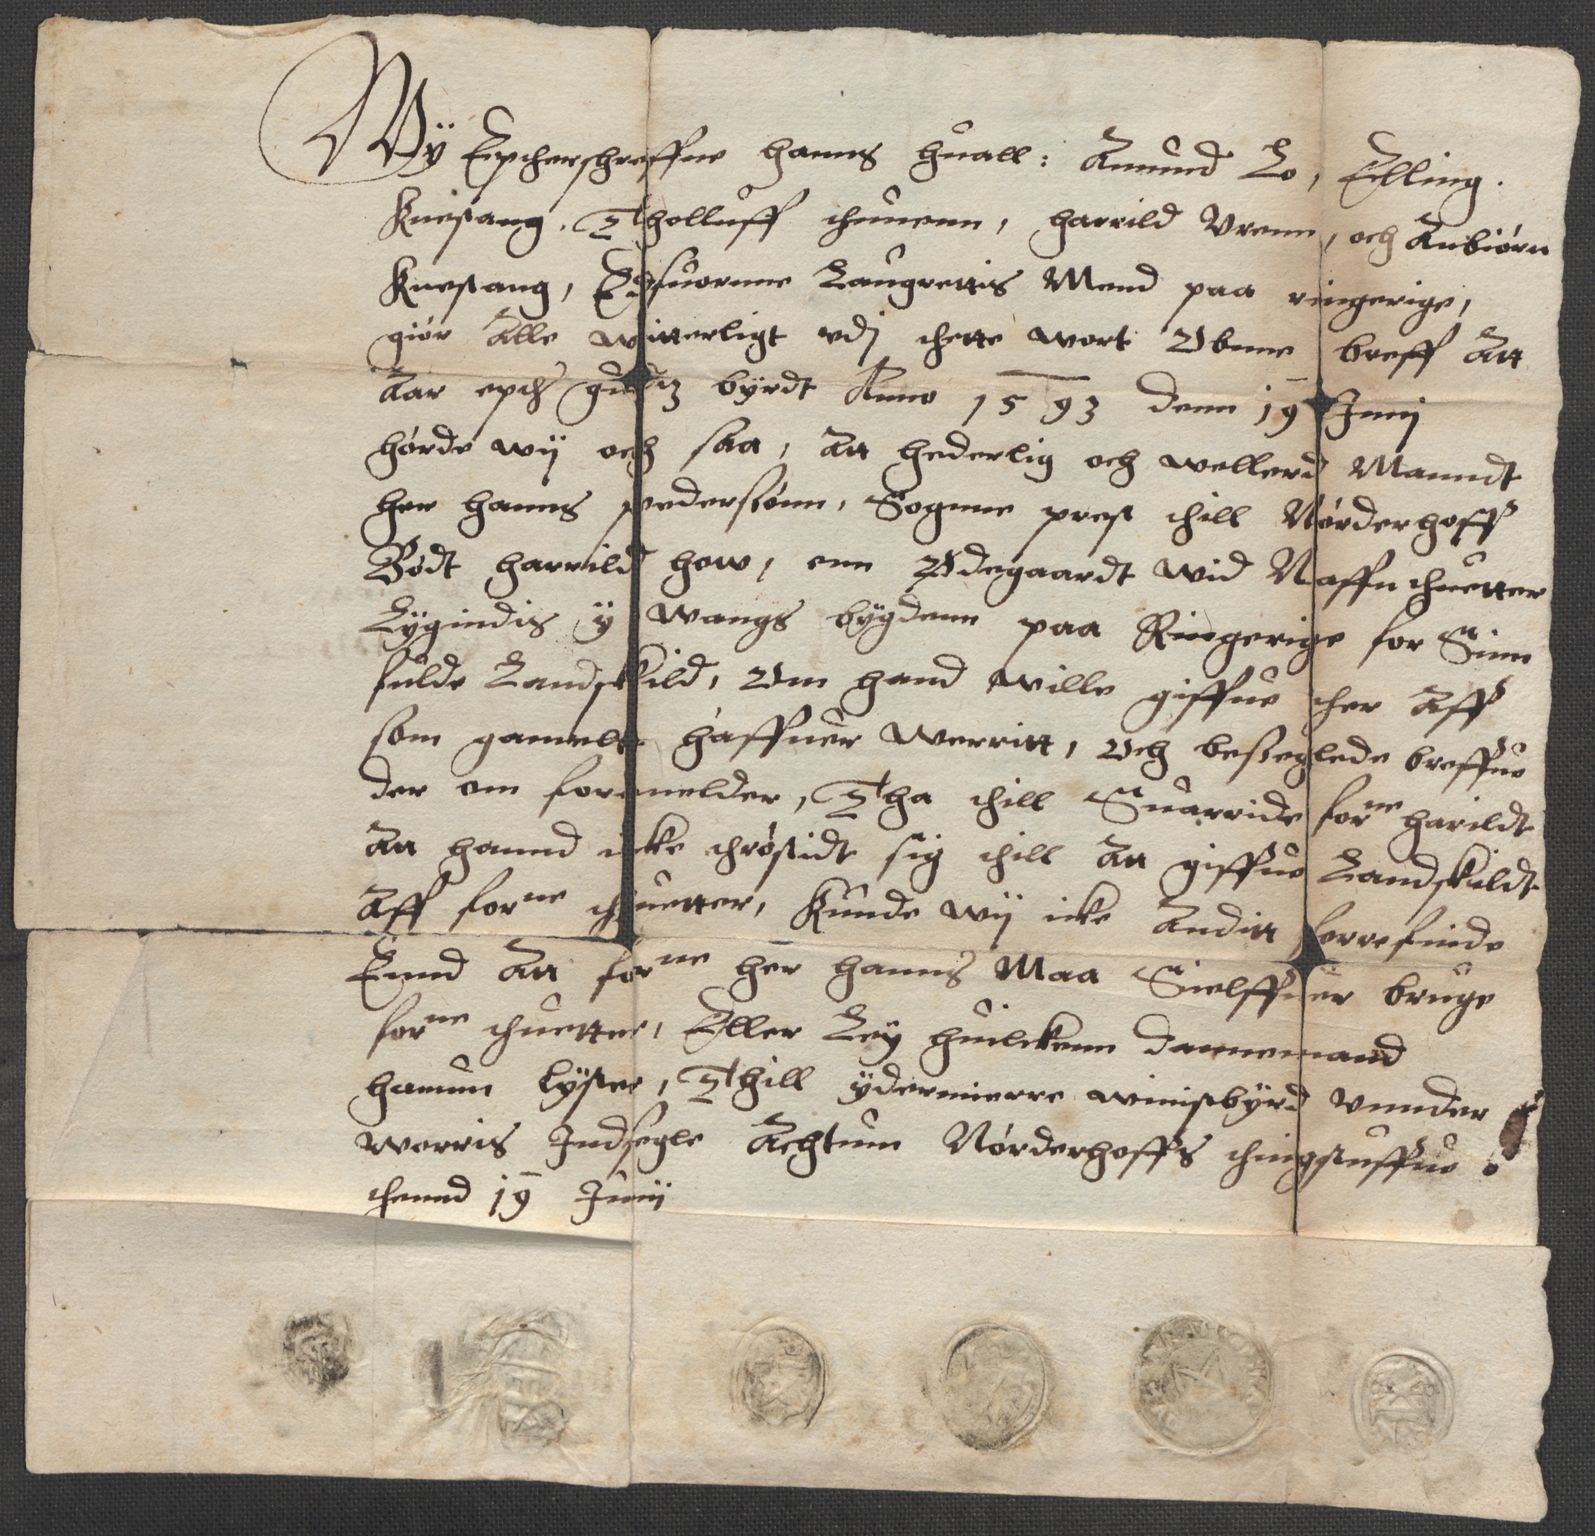 Wÿ Epcherschreffne Hanns Huall: Amund Lo, Elling.
Knestang, Tholluff chuuenn, Harrild Vrenn, och Anbiørn
Knestang, Edsuornne Laugrettis Mend paa ringerige,
giør Alle witterligt vdj chette wort Obnne breff Att
Aar epch gudtz byrdt Anno 1593 denn 19 Junij
hørde wij och saa, Att hederlig och wellerd Manndt
her Hanns pedersønn, Sognne prest chill Nørderhoff
Bødt Harrild How, enn Ødegaardt wid Naffn chuetter
Lygindis ÿ wangs bygdenn paa Ringerige for Sinn
fulde Landskild, Om hand wille giffue cher Aff
som gamelt haffuer werritt, Och beseglede breffue
der om formelder, Tha chill Suarride forne Harildt
Att hannd icke chrøstidt sig chill Att giffue Landskuldt
Aff forne chuetter, Kunde wij icke Anditt forrefinde
Ennd Att forne her Hanns Maa Sielffuer bruge
forne chuetter, Eller Leÿ huilckenn dannemand
hannum lyster, Thill ÿdermierre winisbyrd vnnder
worris Indsegle Achtum Nørderhoffs chingstuffue
chennd 19 Junij